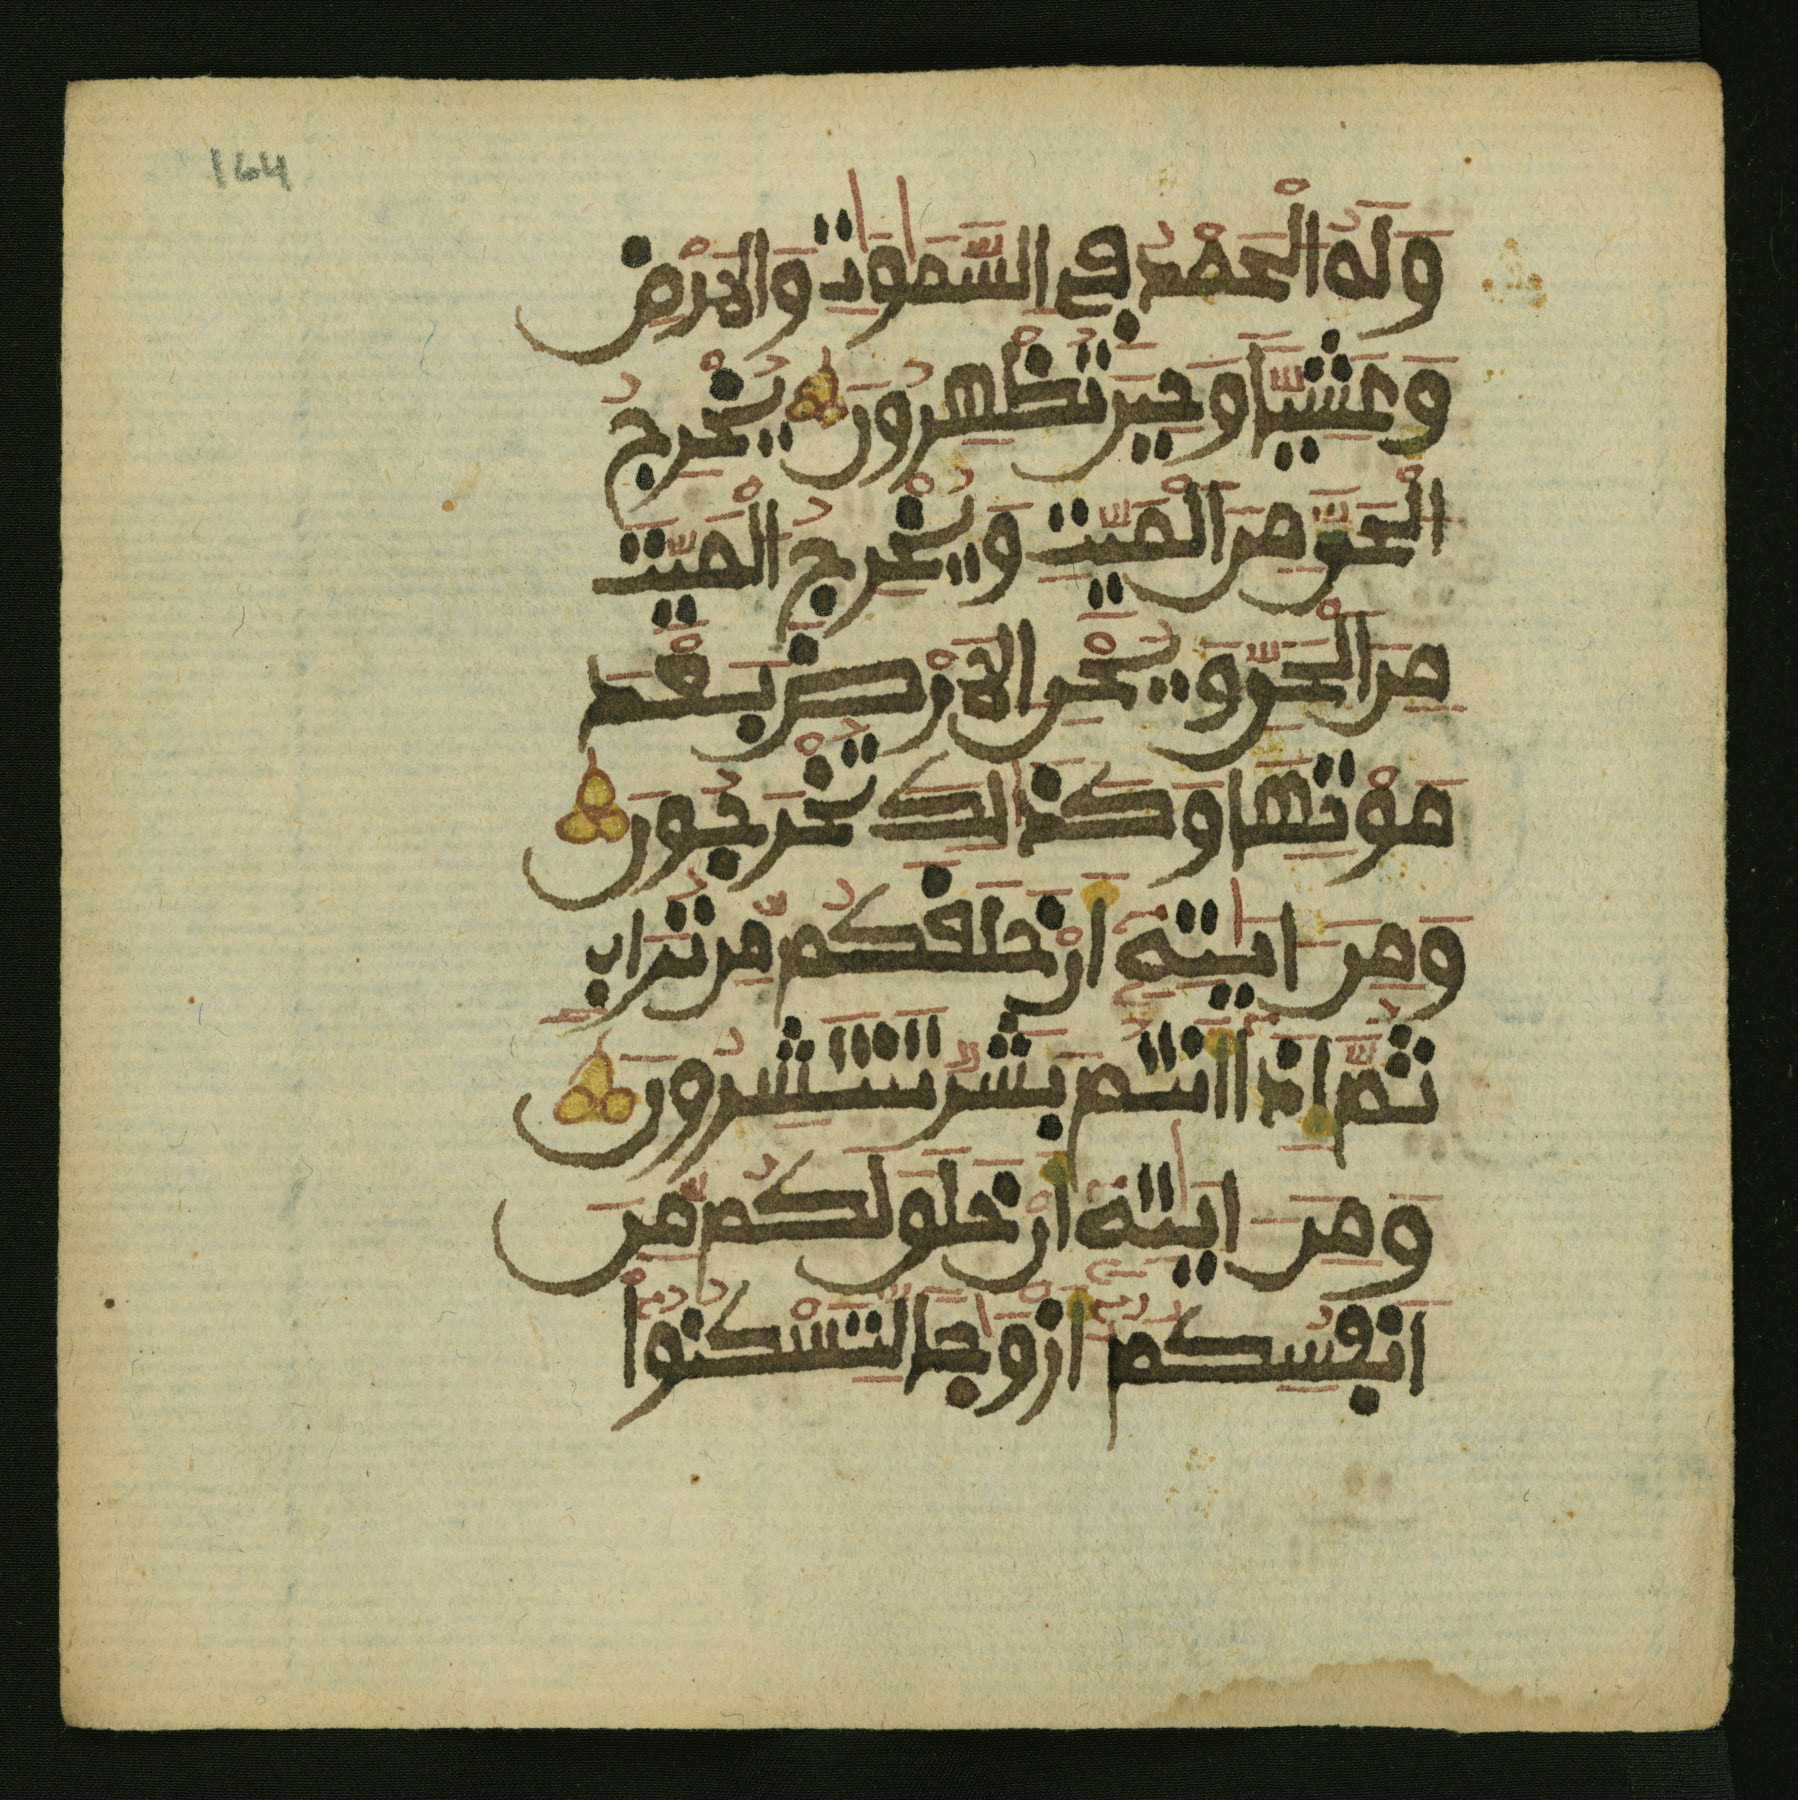 164
وَلَهُ الْحَمْدُ فِي السَّمَٰوَٰتِ وَالَارْضِ
وَعَشِيّاً وَحِينَ تُظْهِرُونَ يُخْرِجُ
الْحَيَّ مِنَ الْمَيِّتِ وَيُخْرِجُ الْمَيِّتَ
مِنَ الْحَيِّ وَيُحْيِ الَارْضَ بَعْدَ
مَوْتِهَا وَكَذَٰلِكَ تُخْرَجُونَ
وَمِنَ ايَٰتِهِ أَنْ خَلَقَكُم مِّن تُرَابٍ
ثُمَّ إِذَا أَنتُم بَشَرٌ تَنتَشِرُونَ
وَمِنَ ايَٰتِهِ أَنْ خَلَقَ لَكُم مِّنَ
انفُسِكُمُ أَزْوَٰجاً لِّتَسْكُنُوا